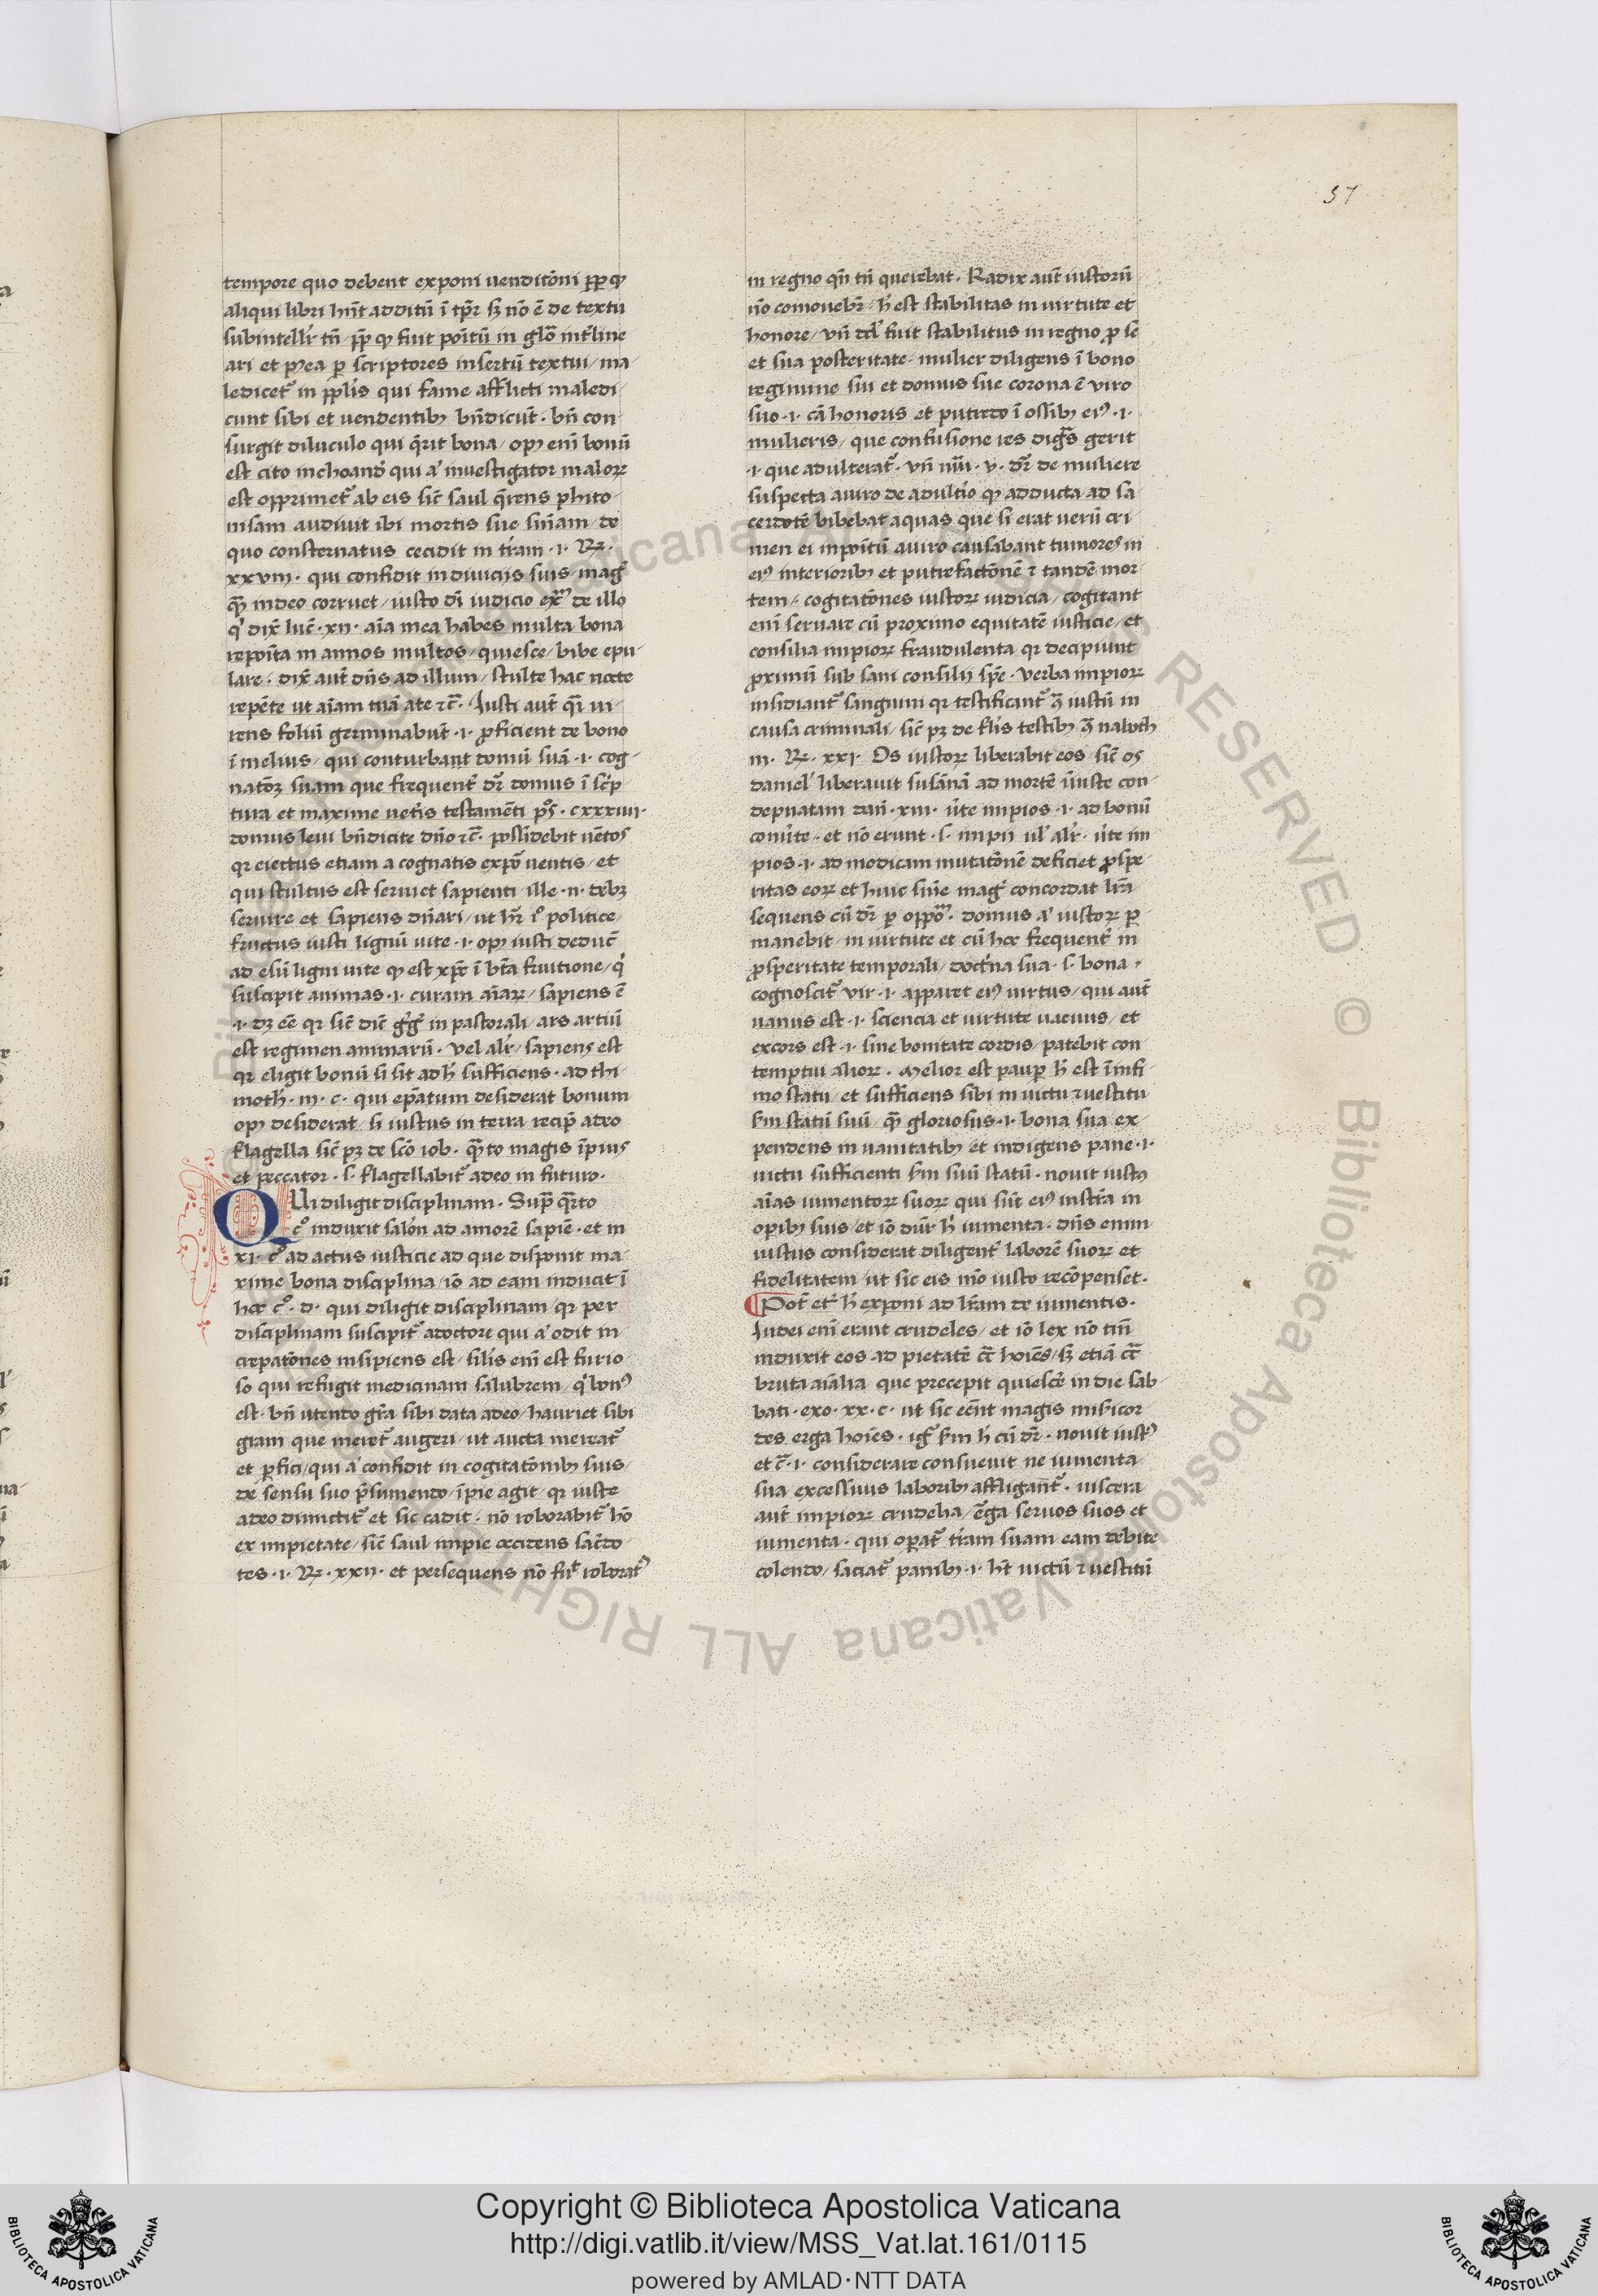 57
tempore quo debent exponi uenditōni ꝓpꝑ ꝙ
aliqui libri hn̄t additū ī tp̄r sꝫ nō ē de textu
subintelli͛r tn̄ / ꝓp̄ ꝙ fuit po͛itū in glō int͛line
ari et p9ea ꝑ scriptores insertū textui / ma
ledicet᷑ in ppl͛is qui fame afflicti maledi
cunt sibi et uendentibꝫ bn̄dicūt · bn̄ con
surgit diluculo qui q̄rit bona / opꝰ eni bonū
est cito inchoand͛ qui a͛ inuestigator maloꝝ
est opprimet᷑ ab eis sic̄ saul q̄rens phito
nisam audiuit ibi mortis sue sn̄iam / de
quo consternatus cecidit in t͛ram · 1 · Rꝝ ·
xxviii · qui confidit in diuicijs suis / mag͛
qᷓꝫ in deo corruet / iusto di͛ iudicio ex᷑ de illo
q͛ dix͛ luc̄ · xii · aīa mea habes multa bona
repo͛ita in annos multos / quiesce / bibe epu
lare · dix͛ aut͛ dn̄s ad illum / stulte hac nocte
repe͛te ut aīam tuā a te ⁊c̄ · Iusti aut͛ qi͛ ui
rens foliū germinabūt · i · ꝓficient de bono
ī melius / qui conturbant domū suā · i · cog
natōꝫ suam que frequent͛ dr͛ domus ī sc͛ip
tura et maxime uet͛is testame͛ti ps͛ · cxxxiiii ·
domus leui bn̄dicite dn̄o ⁊c̄ · possidebit ue͛tos
qꝛ eiectus etiam a cognatis expo͛ uentis / et
qui stultus est seruiet sapienti / ille · n · debꝫ
seruire et sapiens dn̄ari / ut hr͛ i͛º politice /
fructus iusti lignū uite · i · opꝰ iusti deduc̄
ad esū ligni uite ꝙ est xp̄c ī bt͛a fruitione / q͛
suscipit animas · i · curam aīaꝝ / sapiens ē
· i · dꝫ ee͛ qꝛ sic̄ dic̄ g͛g͛ in pastorali / ars artiū
est regimen animarū · Vel al͛r / sapiens est
qꝛ eligit bonū si sit ad h͛ sufficiens · ad thi
moth͛ · iii · c · qui ep̄atum desiderat bonum
opꝰ desiderat / si iustus in terra recip͛ a deo
flagella sic̄ pꝫ de sc͛o iob · qᷓꝫto magis īpius
et peccator · s · flagellabit᷑ a deo in futuro ·
QUi diligit disciplinam · Supᷓ q͛rto
c͛º induxit salōn ad amorē sapiē · et in
xi · c͛º ad actus iusticie ad que disponit ma
xime bona disciplina / iō ad eam inducit ī
hoc c͛º · d · qui diligit disciplinam / qꝛ per
disciplinam suscipit᷑ a doctore qui a͛ odit in
crepatōnes insipiens est / sil͛is eni est furio
so qui refugit medicinam salubrem / q͛ bonꝰ
est · bn̄ utendo gr͛a sibi data a deo / hauriet sibi
gr͛am que meret᷑ augeri / ut aucta mereat᷑
et ꝑfici / qui a͛ confidit in cogitatōnibꝫ suis /
de sensu suo p͛sumendo / īpie agit / qꝛ iuste
a deo dimittit᷑ et sic cadit · nō roborabit᷑ ho͛
ex impietate / sic̄ saul impie occidens sac͛do
tes · i · Rꝝ · xxii · et persequens nō fu͛it roborat᷑
in regno qn̄ tn̄ querebat · Radix aut͛ iustorū
nō comouebr͛ · h͛ est stabilitas in uirtute et
honore / vn̄ dd͛ fuit stabilitus in regno ꝓ se
et sua posteritate · mulier diligens ī bono
regimine sui et domus sue corona ē viro
suo · i · cā honoris et putredo ī ossibꝫ eiꝰ · i ·
mulieris / que confusione res dig͛s gerit
· i · que adulterat᷑ · vn̄ nūi · v · dr͛ de muliere
suspecta a uiro de adult͛io ꝙ adducta ad sa
cerdotē bibebat aquas que si erat uerū cri
men ei inpo͛itū a uiro causabant tumores in
eiꝰ interioribꝫ et putrefactōnē ⁊ tandē mor
tem / · cogitatōnes iustoꝝ iudicia / cogitant
eni seruare cū proximo equitatē iusticie / et
consilia impioꝝ fraudulenta qꝛ decipiunt
ꝓximū sub sani consilij spē · verba impioꝝ
insidiant᷑ sanguini qꝛ testificant᷑ ꝯᷓ iustū in
causa criminali / sic̄ pꝫ de fl͛is testibꝫ ꝯᷓ naboth
iii · Rꝝ · xxi · Os iustoꝝ liberabit eos / sic̄ os
daniel͛ liberauit susānā ad mortē īiuste con
depnatam dan͛ · xiii · u͛te impios · i · ad bonū
conu͛te · et nō erunt · s · impii ul͛ al͛r · u͛te im
pios · i · ad modicam mutatōnē deficiet ꝓspe
ritas eoꝝ et huic sn̄ie mag͛ concordat lr͛a
sequens cū dr͛ ꝑ oppo͛m · domus a͛ iustoꝝ ꝑ
manebit / in uirtute et cū hoc frequent͛ in
ꝓsperitate temporali / doct͛na sua · s · bona ·
cognoscit᷑ vir · i · apparet eiꝰ uirtus / qui aut͛
uanus est · i · sciencia et uirtute uacuus / et
excors est · i · sine bonitate cordis / patebit con
temptui alioꝝ · Melior est paup͛ h͛ est ī infi
mo statu / et sufficiens sibi in uictu ⁊ uestitu
s͛m statū suū / qᷓꝫ gloriosus · i · bona sua ex
pendens in uanitatibꝫ et indigens pane · i ·
uictu sufficienti s͛m suū statū · nouit iustꝰ
aīas iumentoꝝ suoꝝ qui sūt eiꝰ instr͛a in
opibꝫ suis / et iō dūr h͛ iumenta · dn̄s enim
iustus considerat diligent͛ laborē suoꝝ et
fidelitatem / ut sic eis mo͛ iusto recōpenset ·
¶ Pot͛ et͛ h͛ exponi ad lr͛am de iumentis ·
Iudei eni erant crudeles / et iō lex nō tm̄
induxit eos ad pietatē c͛c͛ hoies / sꝫ etiā c͛c͛
bruta aīalia que precepit quiesc͛e in die sab
bati · exo · xx · c · ut sic ee͛nt magis misicor
des erga hoies · ig͛ s͛m h͛ cū dr͛ · nouit iustꝰ
et c̄ · i · considerare consueuit ne iumenta
sua excessiuis laboribꝫ affligant᷑ · uiscera
aut͛ impioꝝ crudelia / e͛ga seruos suos et
iumenta · qui opat᷑ t͛ram suam eam debite
colendo / saciat᷑ panibꝫ · i · h͛t uictū ⁊ uestitū
© Biblioteca Apostolica Vaticana ALL RIGHTS RESERVED © Biblioteca Apostolica Vaticana ALL RIGHTS RESERVED
BIBLIOTECA APOSTOLICA VATICANA
Copyright © Biblioteca Apostolica Vaticana
http://digi.vatlib.it/view/MSS_Vat.lat.161/0115
powered by AMLAD·NTT DATA
BIBLIOTECA APOSTOLICA VATICANA